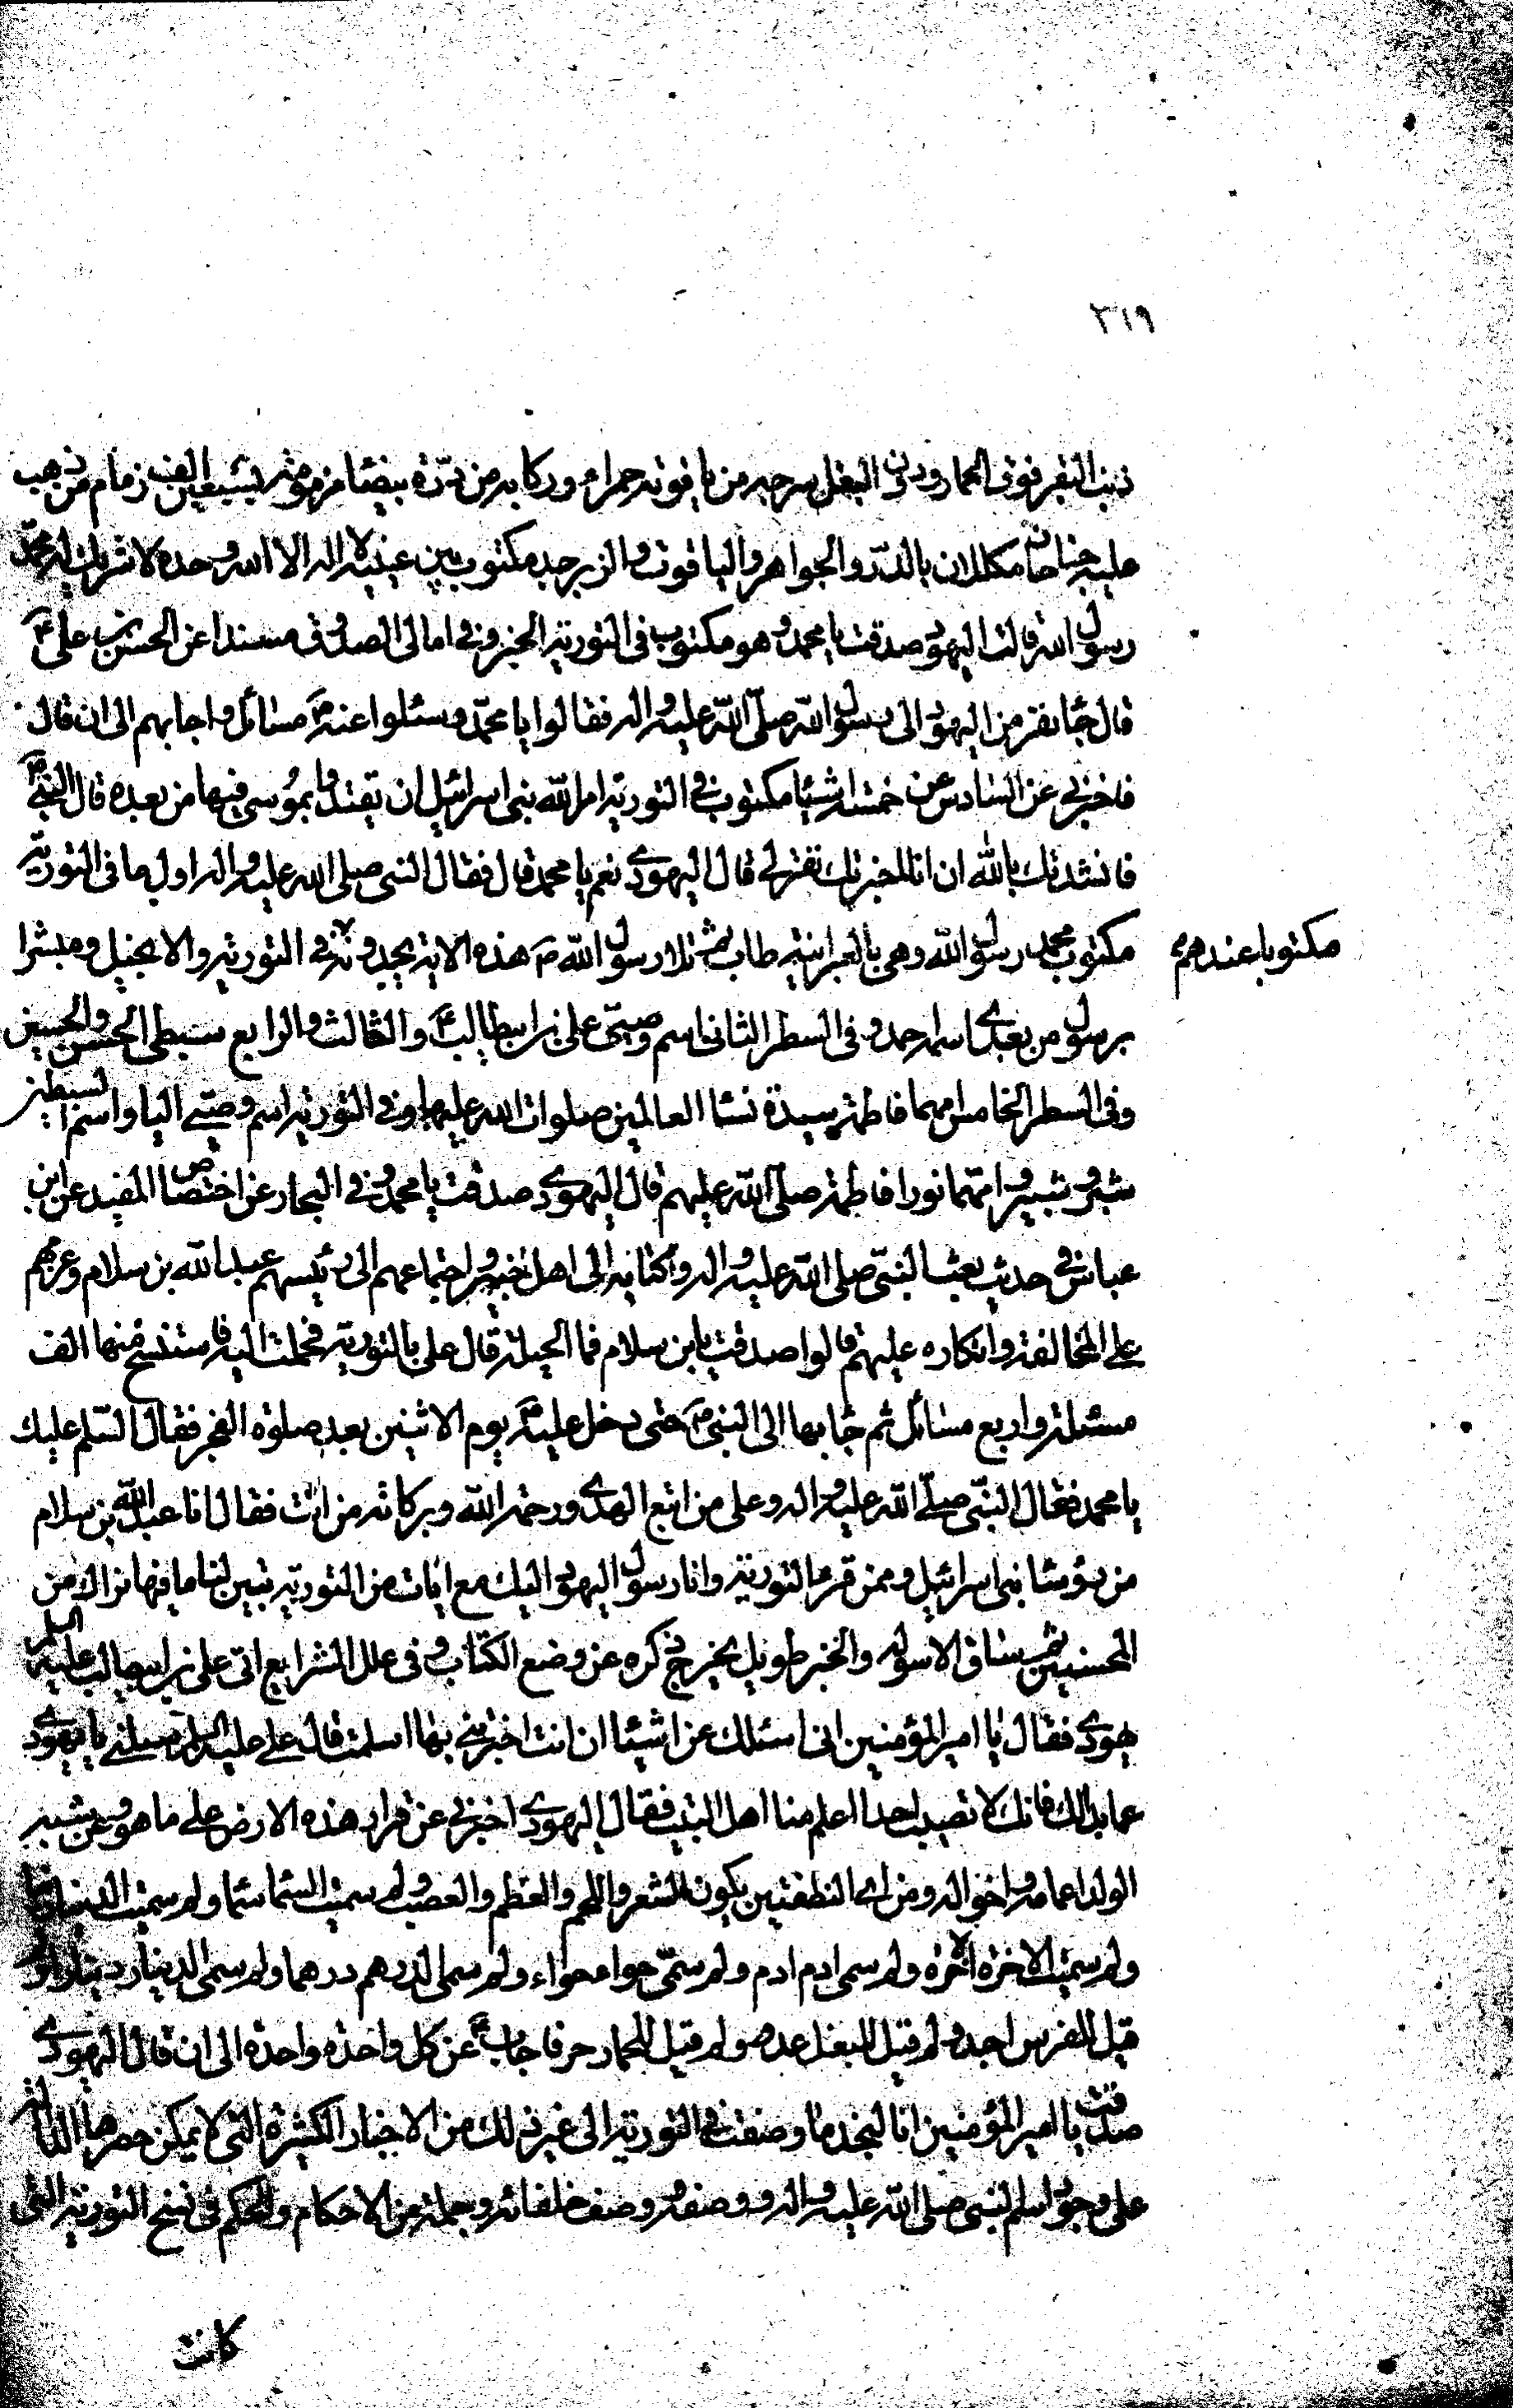 ٣١٩
ذنب البقر فوق الحمار ودون البغل سرجه من ياقوتة حمراء وركابه من درة بيضا مزمومة بسبعين الف زمام من ذهب
عليه جناحان مكللان بالدر والجواهر والياقوت والزبرجد مكتوب بين عينيه لا اله الا الله وحده لا شريك له محمد
رسول الله قالت اليهود صدقت يا محمد و هو مكتوب فى التورية الخبر وفى امالى الصدوق مسندا عن الحسن بن على ع
قال جا نفر من اليهود الى رسول الله صلى الله عليه واله فقالوا يا محمد وسئلوا عنه ص مسائل واجابهم الى ان قال
فاخبرنى عن السادس عن خمسة اشيا مكتوب فى التورية امر الله بنى اسرائيل ان يقتدوا بموسى فيها من بعده قال النبى ص
فانشدتك بالله ان انا اخبرتك تقر لى قال اليهودى نعم يا محمد قال فقال النبى صلى الله عليه واله اول ما فى التورية
مكتوب محمد رسول الله وهى بالعبرانية طاب ثم تلا رسول الله ص هذه الاية يجدونه فى التورية والانجيل ومبشرا
مكتوبا عندهم
برسول من بعدى اسمه احمد و فى السطر الثانى اسم وصيى على بن ابيطالب ع والثالث والرابع سبطى الحسن والحسين
وفى السطر الخامس امهما فاطمة سيدة نسا العالمين صلوات الله عليها وفى التورية اسم وصيى اليا واسم السبطين
شبر وشبير وامهما نورا فاطمة صلى الله عليهم قال اليهودى صدقت يا محمد وفى البحار عن اختصاص المفيد عن ابن
عباس فى حديث بعث النبى صلى الله عليه واله وكتابه الى اهل خيبر واجتماعهم الى رئيسهم عبد الله بن سلام وعزمهم
على المخالفة وانكاره عليهم قالوا صدقت يابن سلام فما الحيلة قال على بالتورية فحملت اليه فاستنسخ منها الف
مسئلة واربع مسائل ثم جا بها الى النبى ص حتى دخل عليه ص يوم الاثنين بعد صلوة الفجر فقال السلم عليك
يا محمد فقال النبى صلى الله عليه واله وعلى من اتبع الهدى ورحمة الله وبركاته من انت فقال انا عبد الله بن سلام
من رؤسا بنى اسرائيل وممن قرء التورية وانا رسول اليهود اليك مع ايات من التورية تبين لنا ما فيها نراك من
المحسنين ثم ساق الاسولة والخبر طويل يخرج ذكره عن وضع الكتاب و فى علل الشرايع اتى على بن ابيطالب عليه السلم
يهودى فقال يا امير المؤمنين انى اسئلك عن اشيا ان انت اخبرتنى بها اسلمت قال على عليه السلم سلنى يا يهودى
عما بدا لك فانك لا تصيب احدا اعلم منا اهل البيت فقال اليهودى اخبرنى عن قرار هذه الارض على ما هو وعن شبه
الولد اعمامه واخواله ومن اى النطفتين يكون الشعر واللحم والعظم والعصب ولم سميت السما سما ولم سميت الدنيا دنيا
ولم سميت الاخرة الاخرة ولم سمى ادم ادم ولم سمى حوا حواء ولم سمى الدرهم درهما ولم سمى الدينار دينارا ولم
قيل للفرس اجد ولم قيل للبغل عد ولم قيل للحمار حر فاجاب ع عن كل واحدة واحدة الى ان قال اليهودى
صدقت يا امير المؤمنين انا لنجد ما وصفت فى التورية الى غير ذلك من الاخبار الكثيرة التى لا يمكن حصرها الدالة
على وجود اسم النبى صلى الله عليه واله ووصفه ووصف خلفائه وجملة من الاحكام والحكم فى نسخ التورية التى
كانت